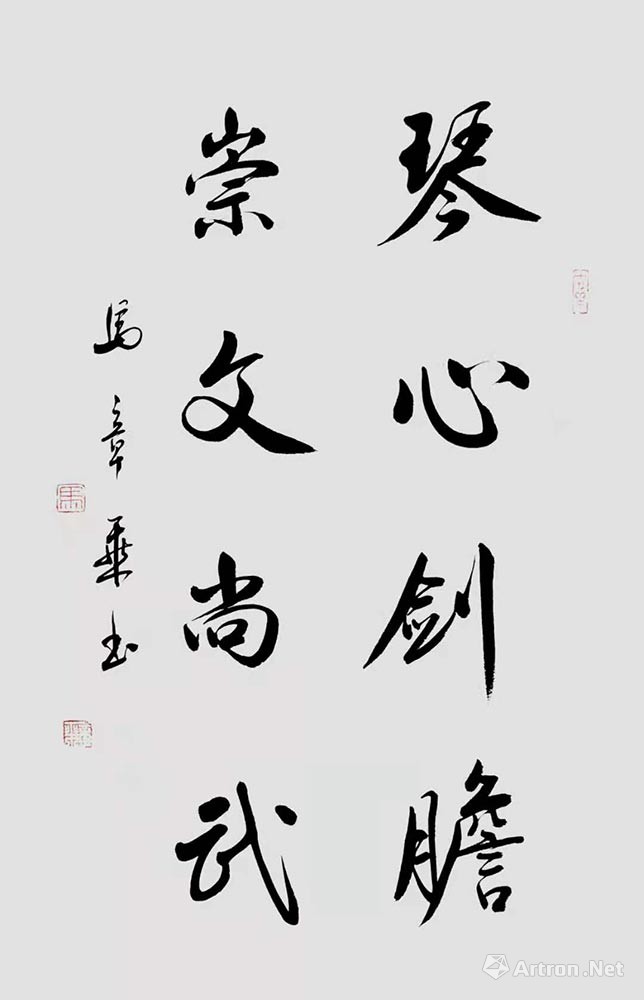 琴心剑膽
崇文尚武
馬章乘书
Artron.Net